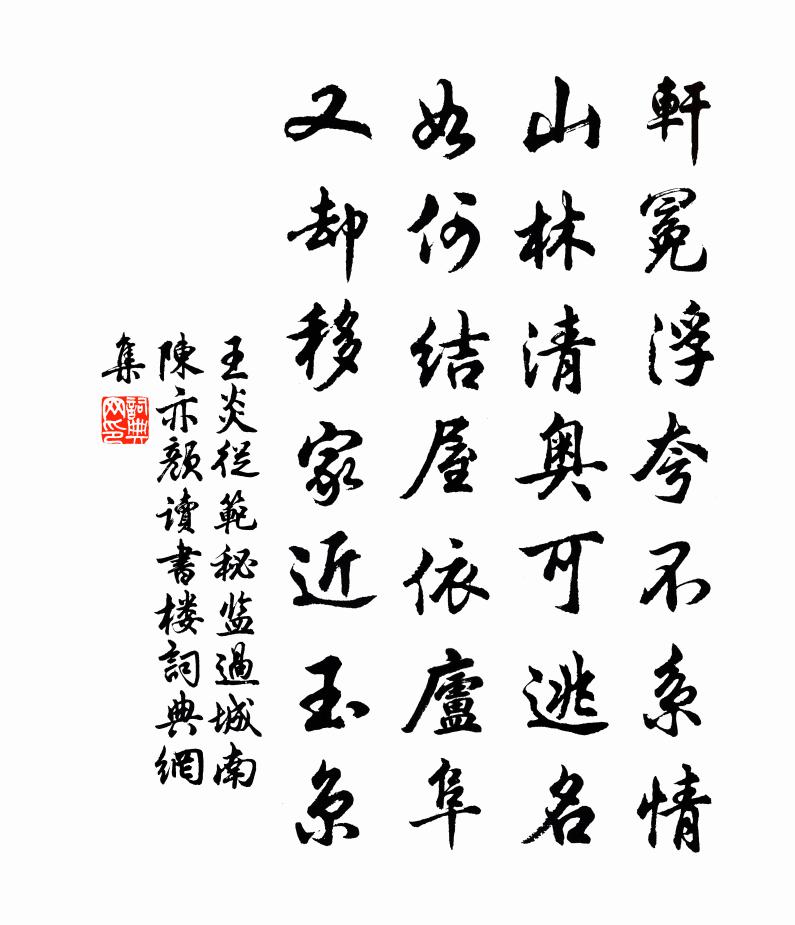 軒冕浮夸不系情
山林清奥可逃名
如何结屋依廬阜
又却移家近玉京
王炎從範秘监過城南
陳亦顏读書楼詞典網
集
詞典
网印